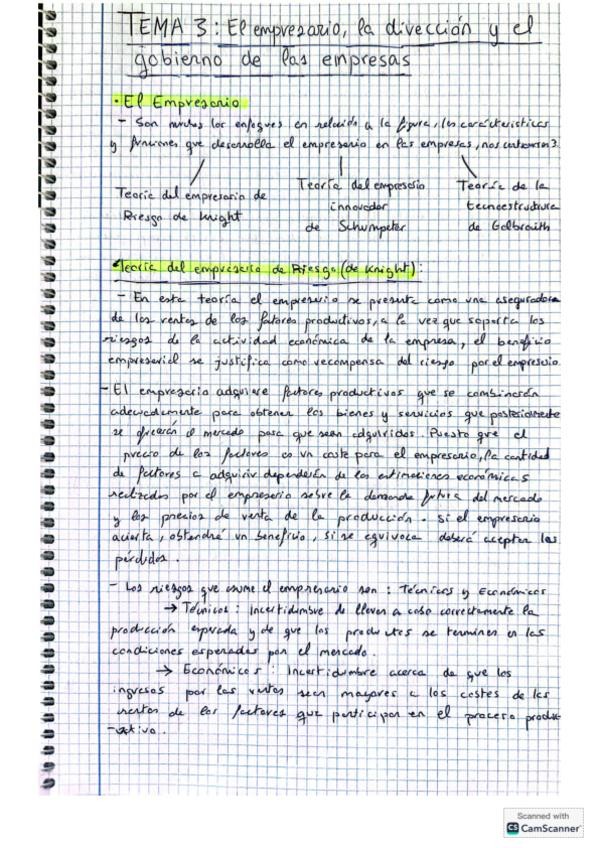 TEMA 3: El empresario, la dirección y el
gobierno de las empresas
• El Empresario
- Son muchos los enfoques en relación a la figura, las características
y funciones que desarrolla el empresario en las empresas, nos centramos 3
Teoría del empresario de
Riesgo de Knight
Teoría del empresario
innovador
de Schumpeter
Teoría de la
tecnoestructura
de Galbraith
• Teoría del empresario de Riesgo (de Knight):
- En esta teoría el empresario se presenta como una aseguradora
de las rentas de los factores productivos, a la vez que soporta los
riesgos de la actividad económica de la empresa, el beneficio
empresarial se justifica como recompensa del riesgo por el empresario
- El empresario adquiere factores productivos que se combinarán
adecuadamente para obtener los bienes y servicios que posteriormente
se ofrecerán al mercado para que sean adquiridos. Puesto que el
precio de los factores es un coste para el empresario, la cantidad
de factores a adquirir dependerán de las estimaciones económicas
realizadas por el empresario sobre la demanda futura del mercado
y los precios de venta de la producción. Si el empresario
acierta, obtendrá un beneficio, si se equivoca deberá aceptar las
pérdidas.
- Los riesgos que asume el empresario son: Técnicos y Económicos
→ Técnicos: Incertidumbre de llevar a cabo correctamente la
producción esperada y de que los productos se terminen en las
condiciones esperadas por el mercado.
→ Económicos: Incertidumbre acerca de que los
ingresos por las ventas sean mayores a los costes de las
rentas de los factores que participan en el proceso produc-
-tivo.
Scanned with
CS CamScanner